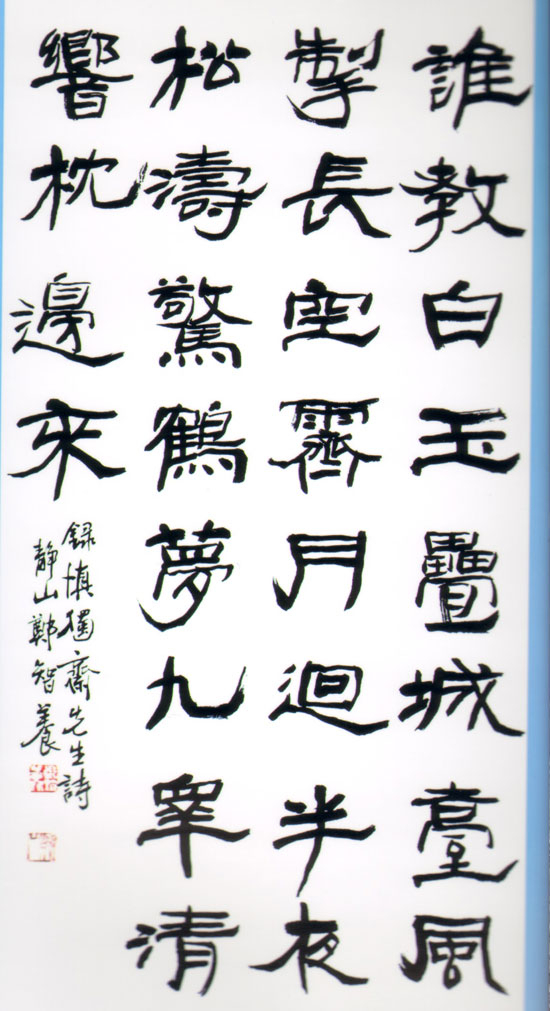 誰教白玉疊城臺風
掣長空霽月迴半夜
松濤驚鶴夢九睾清
響枕邊來
録慎獨齋先生詩
靜山鄭智養